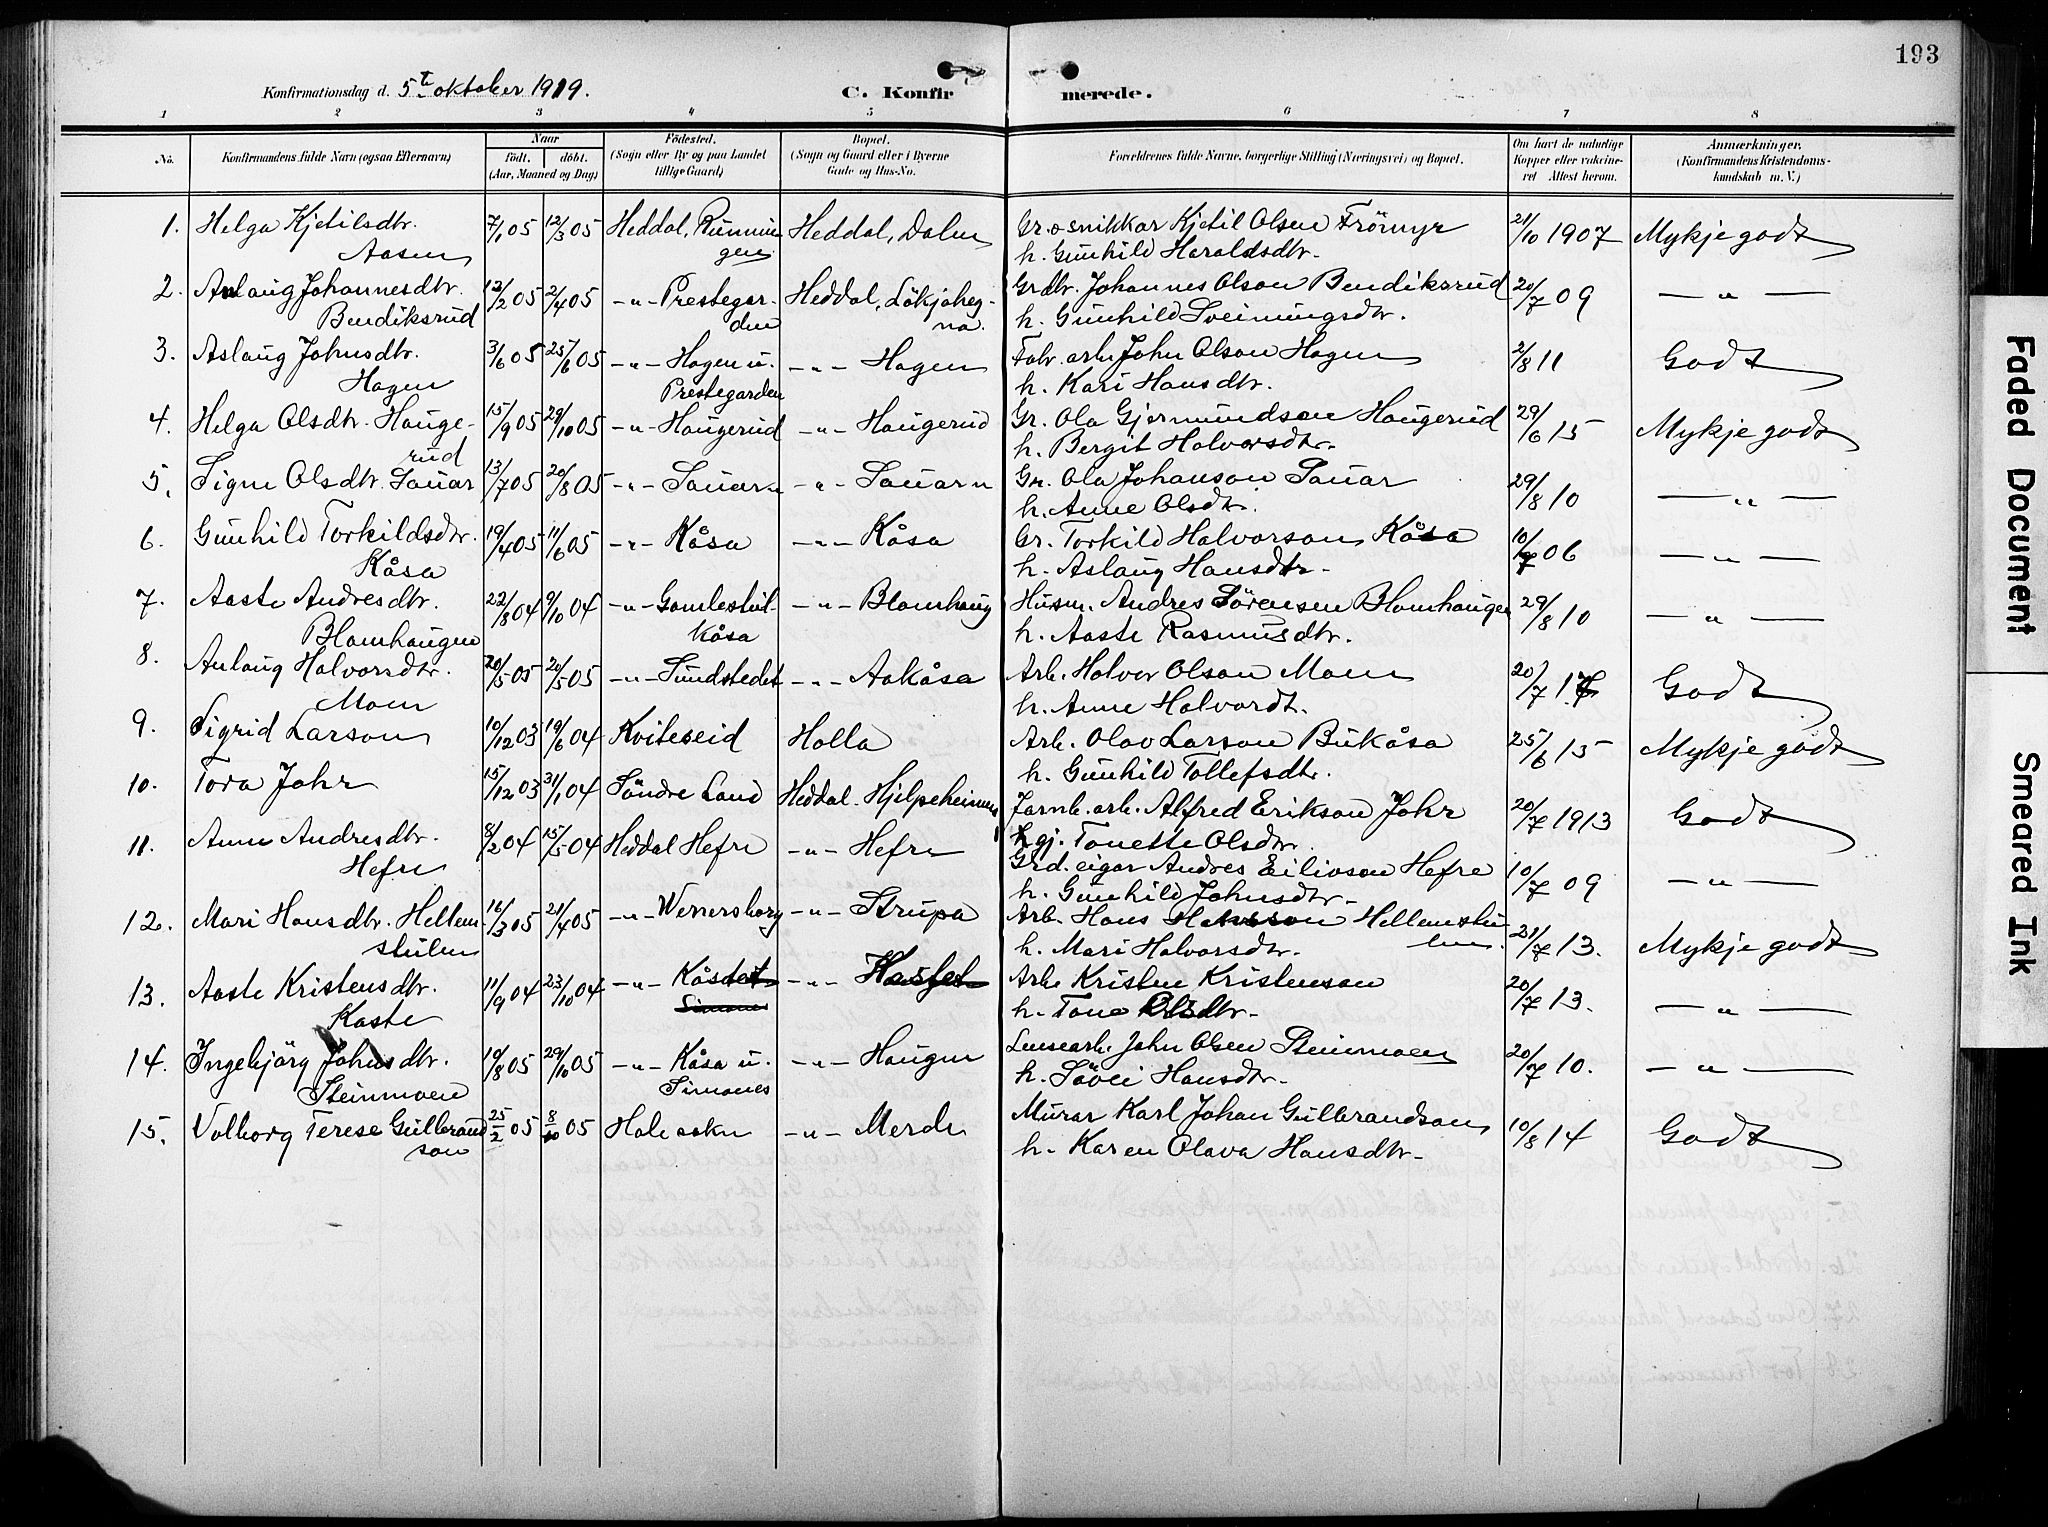 193
Konfirmationsdag d. 5te oktober 1919.
C. Konfirmerede.
1 2 3 4 5 6 7 8
No. Konfirmandens fulde Navn (ogsaa Efternavn) Naar födt. döbt. (Aar, Maaned og Dag) Födested. (Sogn eller By og paa Landet tillige Gaard) Bopæl. (Sogn og Gaard eller i Byerne Gade og Hus-No. Forældrenes fulde Navne, borgerlige Stilling (Næringsvei) og Bopæl. Om havt de naturlige Kopper eller vaccineret Attest herom. Anmærkninger. (Konfirmandens Kristendomskundskab m. V.)
1. Helga Kjetilsdtr. 7/1 05 12/3 05 Heddal, Runnin- Heddal, Dalen Gr. o snikkar Kjetil Olsen Frömyr 21/10 1907 Mykje godt
Aasen gen h. Gunhild Haraldsdtr.
2. Aslaug Johannesdtr. 12/2 05 2/4 05 -"- Prestegar- Heddal, Lökjaheg- Grdbr. Johannes Olson Bendiksrud 20/7 09 — " —
Bendiksrud den na. h. Gunhild Sveinungsdtr.
3. Aslaug Johnsdtr. 3/6 05 25/6 05 -"- Hagen u. -"- Hagen Fabr. arb. John Olson Hagen 2/8 11 Godt
Hagen Prestegarden h. Kari Hansdtr.
4. Helga Olsdtr. Hauge- 15/9 05 29/10 05 -"- Haugerud -"- Haugerud Gr. Ola Gjermundson Haugerud 29/6 15 Mykje godt
rud h. Bergit Halvorsdtr.
5. Signe Olsdtr. Sauar 13/7 05 20/8 05 -"- Sauarn -"- Sauarn Gr. Ola Johanson Sauar 29/8 10 — " —
h. Anne Olsdtr.
6. Gunhild Torkildsdtr. 19/4 05 11/6 05 -"- Kåsa -"- Kåsa Gr. Torkild Halvorson Kåsa 10/7 06 — " —
Kåsa h. Aslaug Hansdtr.
7. Aaste Andresdtr. 22/8 04 9/10 04 -"- Gamlestul- -"- Blomhaug Husm. Andres Sörensen Blomhaugen 29/8 10 — " —
Blomhaugen kåsa h. Aaste Rasmusdtr.
8. Anlaug Halvorsdtr. 20/5 05 20/5 05 -"- Sundstedet -"- Aakåsa Arb. Halvor Olson Moen 20/7 17 Godt
Moen h. Anne Halvordt.
9. Sigrid Larson 10/12 03 19/6 04 Kviteseid Holla Arb. Olav Larson Bukåsa 25/6 15 Mykje godt
h. Gunhild Tollefsdtr.
10. Tora Johr 15/12 03 31/1 04 Söndre Land Heddal. Hjelpeheimen Jarnb. arb. Alfred Erikson Johr 20/7 1913 Godt
gj. Tonette Olsdtr.
11. Anne Andresdtr. 8/2 04 15/5 04 Heddal Hefre -"- Hefre Grd. eigar Andres Eilivson Hefre 10/7 09 — " —
Hefre h. Gunhild Johnsdtr.
12. Mari Hansdtr. Hellem- 16/3 05 21/4 05 -"- Wenersborg -"- Strupa Arb. Hans Hansson Hellemstu- 21/7 13. Mykje godt
stulen len. h. Mari Halvorsdtr.
13. Aaste Kristensdtr. 11/9 04 23/10 04 -"- Kåstet -"- Arb. Kristen Kristenson 20/7 13. — " —
Kaste Simones h. Tone Olsdtr.
14. Ingebjörg Johnsdtr. 19/8 05 29/10 05 -"- Kåsa u. -"- Haugen Lensearb. John Olsen Steinmoen 20/7 10. — " —
Steinmoen Simones h. Sövei Hansdtr.
15. Volborg Terese Gulbrand- 25/2 05 8/10 05 Hole sokn -"- Merde Murar Karl Johan Gulbrandson 10/8 14 Godt
son h. Karen Olava Hansdtr.
Faded Document
Smeared Ink